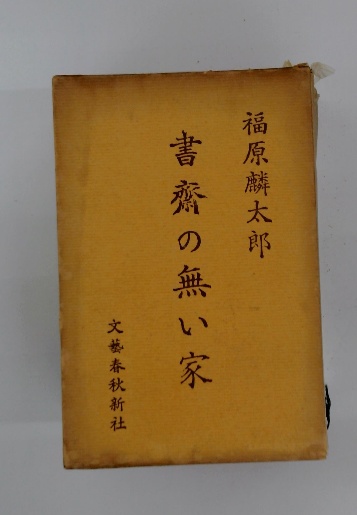 福原麟太郎
書齋の無い家
文藝春秋新社